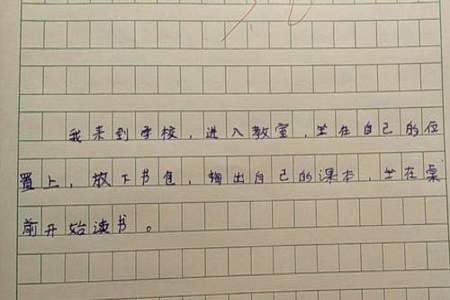 我来到学校，进入教室，坐在自己的位
置上，放下书包，掏出自己的课本，坐在桌
前开始读书。